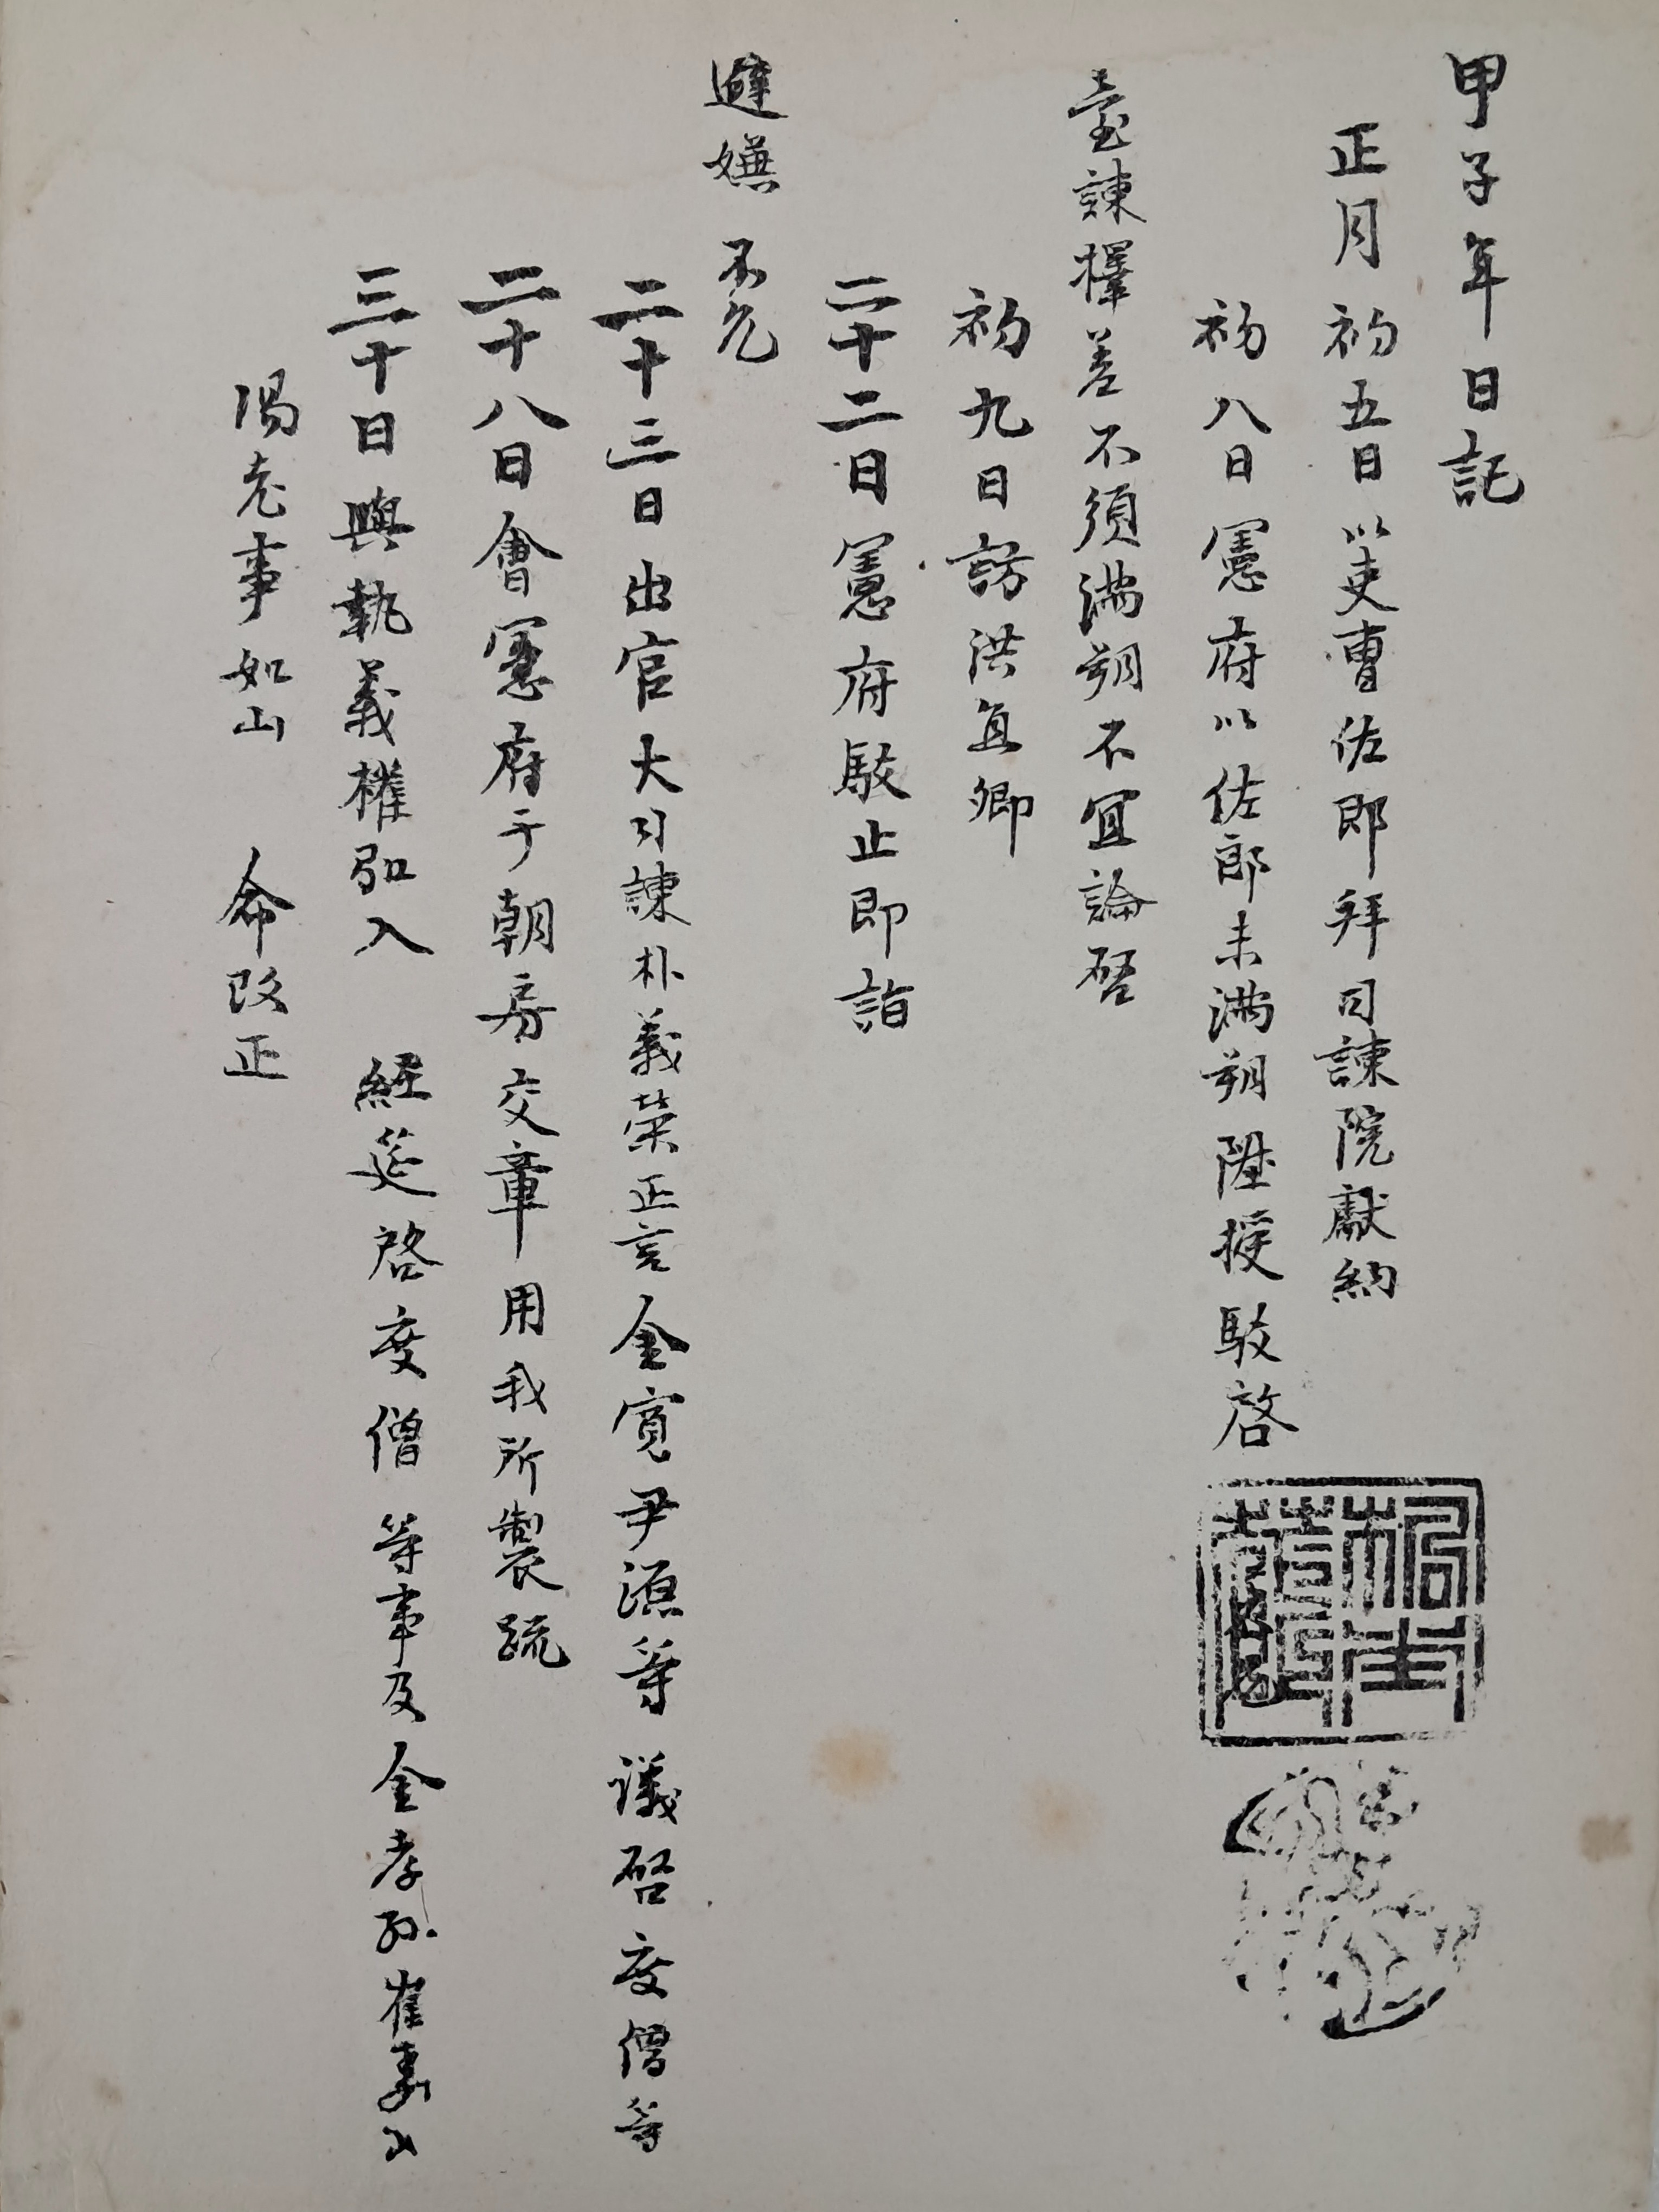 甲子年日記
正月初五日以吏曺佐郎拜司諫院獻納
初八日憲府以佐郎未滿朔陞授駁啓
臺諫擇差不須滿朔不宜論啓
初九日訪洪直卿
二十二日憲府駁止即詣
避嫌不允
二十三日出官大司諫朴義榮正言金寬尹源等議啓度僧等
二十八日會憲府于朝房交章用我所製疏
三十日與執義權弘入 經筵啓度僧等事及金孝孫崔
陽老事如山 命改正